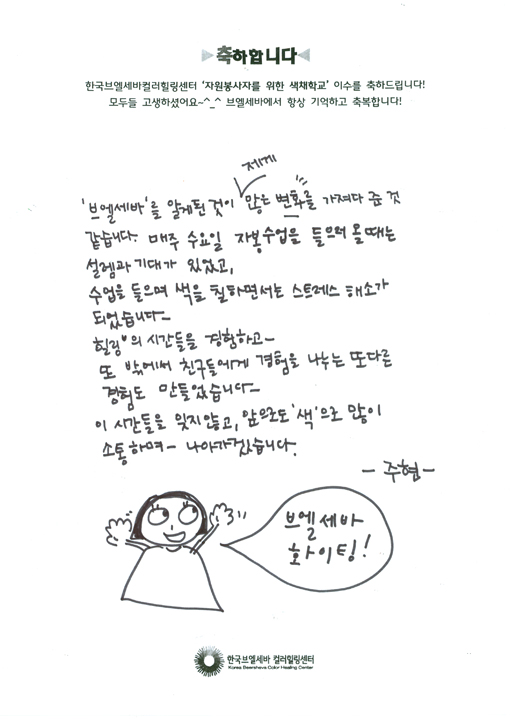 ▶축하합니다◀
한국브엘세바컬러힐링센터 '자원봉사자를 위한 색채학교' 이수를 축하드립니다!
모두들 고생하셨어요~^_^ 브엘세바에서 항상 기억하고 축복합니다!
제게
'브엘세바'를 알게된 것이 많은 변화를 가져다 준 것
같습니다. 매주 수요일 자봉수업을 들으러 올때는
설렘과 기대가 있었고,
수업을 들으며 색을 칠하면서는 스트레스 해소가
되었습니다-
힐링의 시간들을 경험하고-
또 밖에서 친구들에게 경험을 나누는 또다른
경험도 만들었습니다-
이 시간들을 잊지않고, 앞으로도 '색'으로 많이
소통하며- 나아가겠습니다.
- 주현 -
브엘세바
화이팅!
한국브엘세바 컬러힐링센터
Korea Beersheva Color Healing Center